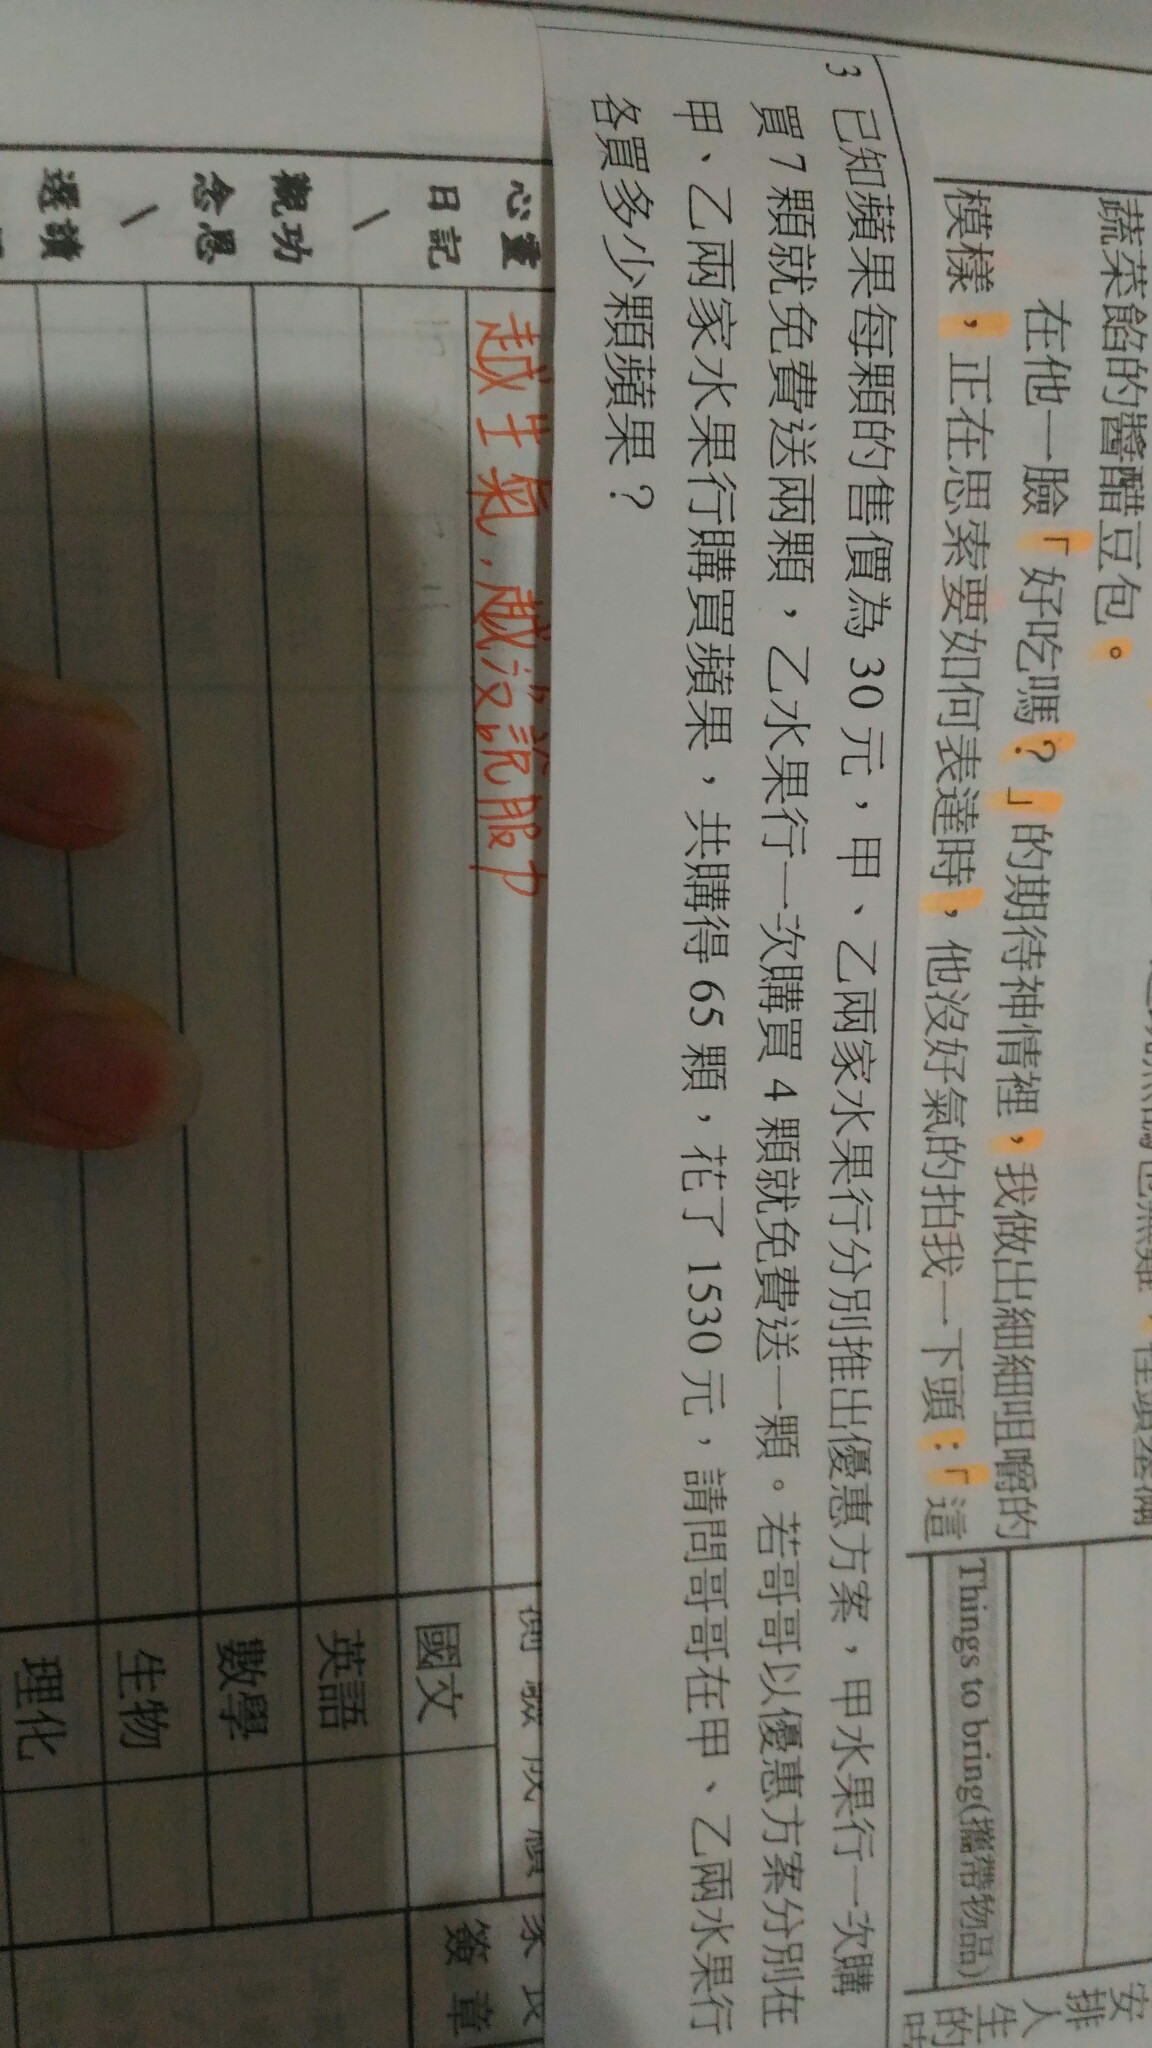 蔬菜餡的醬醋豆包。
在他一臉「好吃嗎?」的期待神情裡,我做出細細咀嚼的
模樣,正在思索要如何表達時,他沒好氣的拍我一下頭:「這
Things to bring(攜帶物品)
安排
人生的
3 已知蘋果每顆的售價為 30 元,甲、乙兩家水果行分別推出優惠方案,甲水果行一次購
買 7 顆就免費送兩顆,乙水果行一次購買 4 顆就免費送一顆。若哥哥以優惠方案分別在
甲、乙兩家水果行購買蘋果,共購得 65 顆,花了 1530 元,請問哥哥在甲、乙兩水果行
各買多少顆蘋果?
越生氣,越沒說服力
日記
國文
英語
數學
生物
理化
簽章